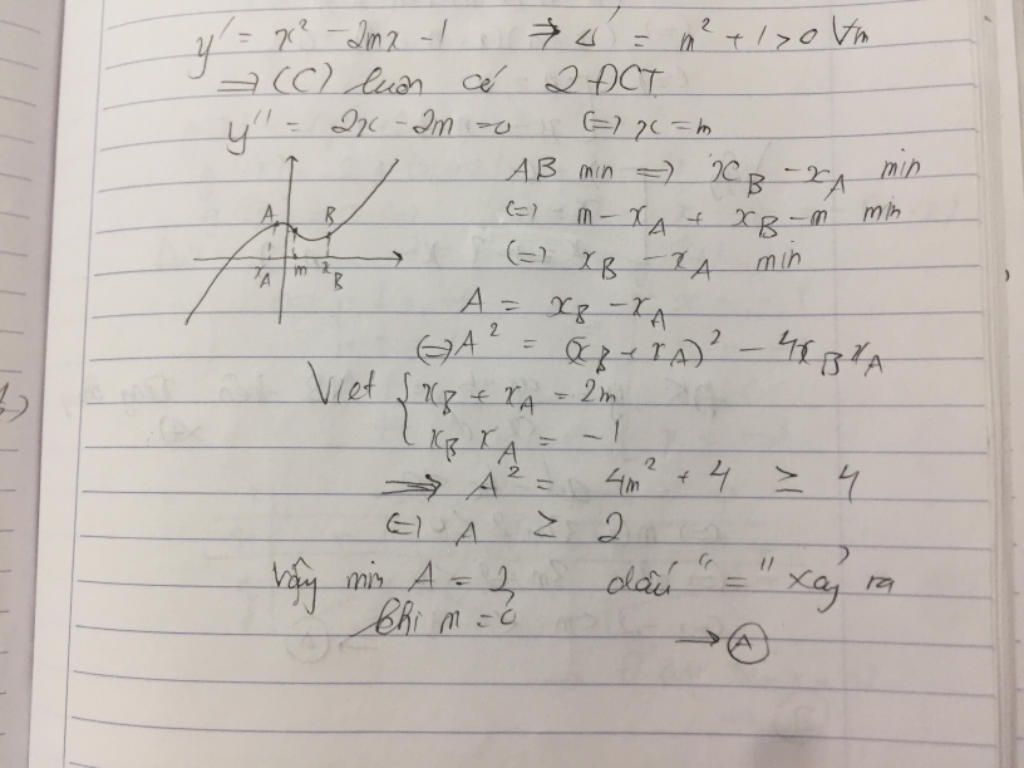 y' = x² - 2mx - 1 ⇒ Δ' = m² + 1 > 0 ∀m
⇒ (C) luôn có 2 ĐCT
y'' = 2x - 2m = 0 (=) x = m
AB min => x_B - x_A min
(=) m - x_A + x_B - m min
(=) x_B - x_A min
A B
x_A m x_B
A = x_B - x_A
(=) A² = (x_B + x_A)² - 4x_B x_A
Viet { x_B + x_A = 2m
x_B x_A = -1
⇒ A² = 4m² + 4 ≥ 4
(=) A ≥ 2
Vậy min A = 2 dấu "=" xảy ra
khi m = 0
→ A